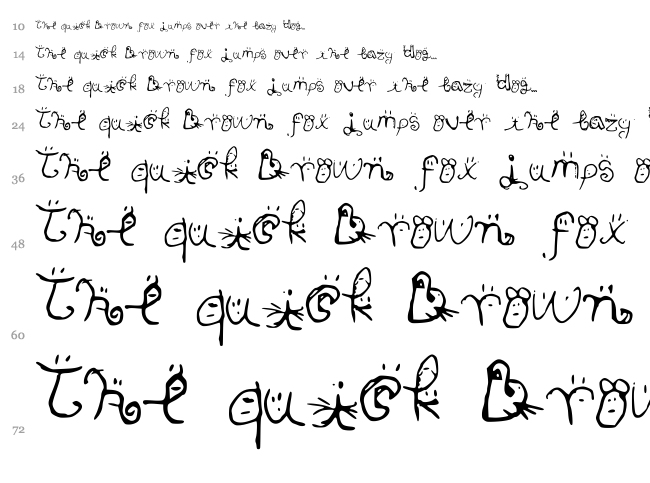 10 The quick Brown fox jumps over the lazy dog...
14 The quick Brown fox jumps over the lazy dog...
18 The quick Brown fox jumps over the lazy dog...
24 The quick Brown fox jumps over the lazy
36 The quick Brown fox jumps
48 The quick Brown fox
60 The quick Brown
72 The quick Bro